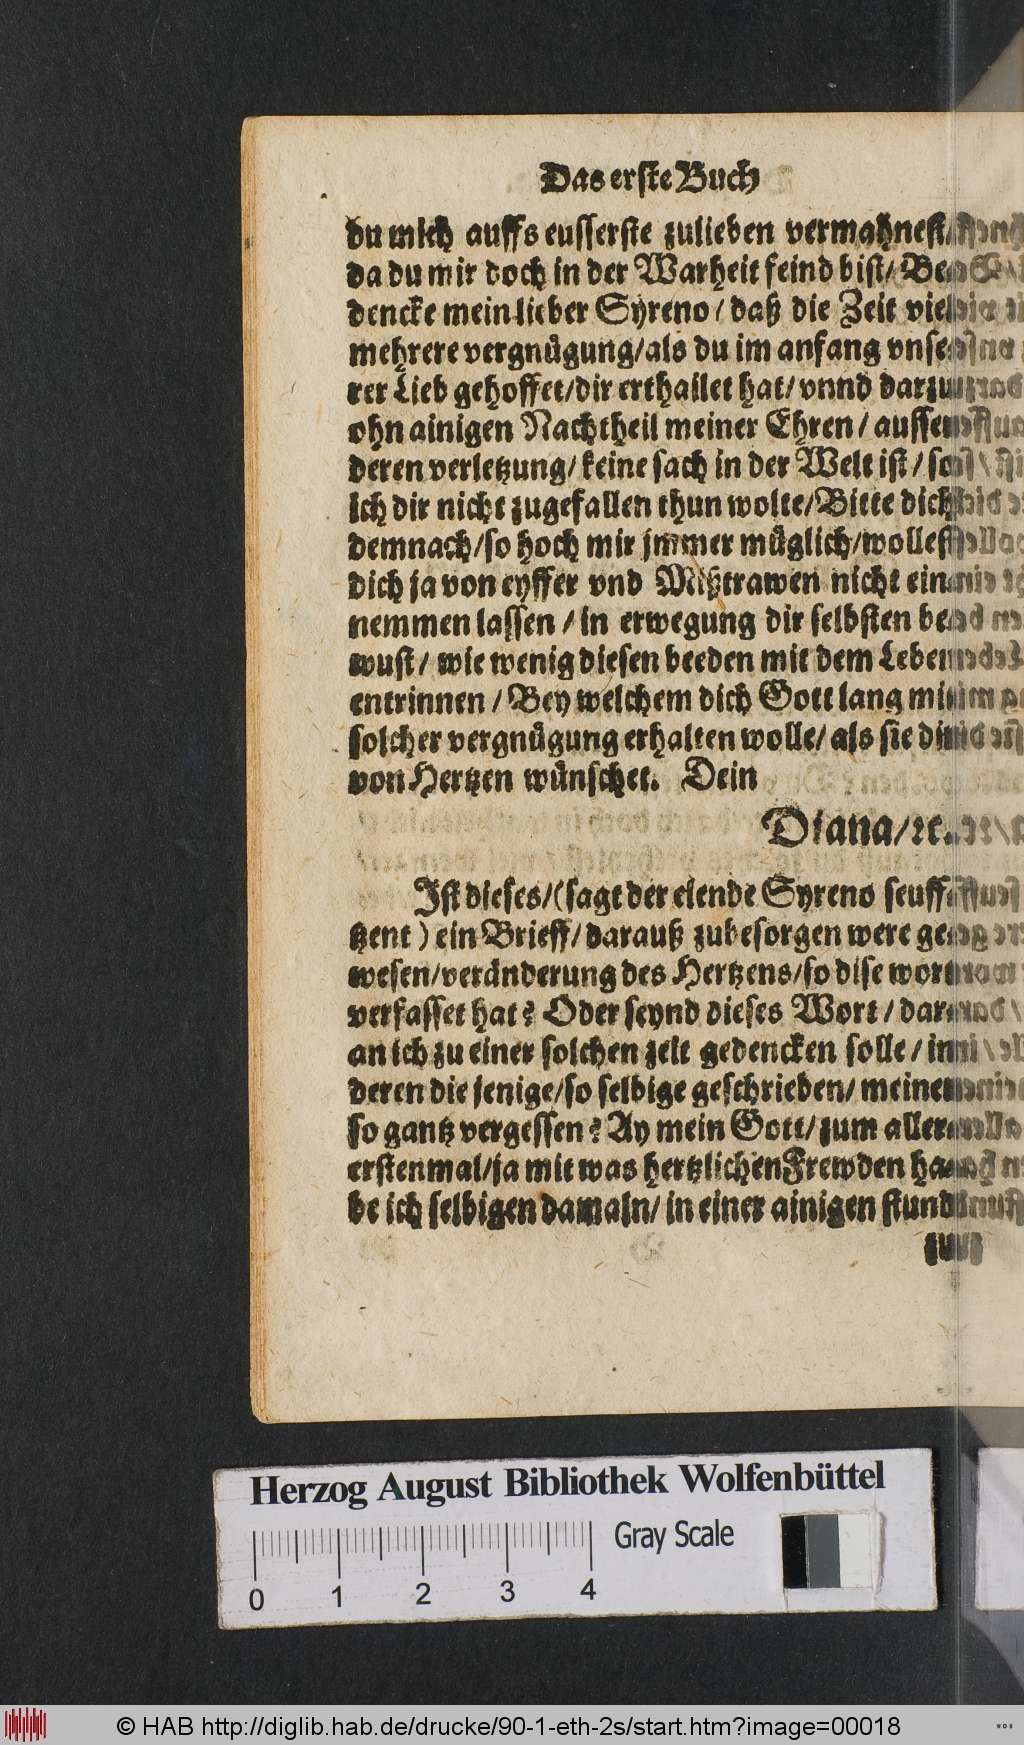 Das erste Buch
du mich auffs eusserste zulieben vermahnest/
da du mir doch in der Warheit feind bist/ Be-
dencke mein lieber Syreno/ daß die Zeit viel
mehrere vergnügung/als du im anfang vnse-
rer Lieb gehoffet/dir erthailet hat/ vnnd darzu
ohn ainigen Nachtheil meiner Ehren/ aussen
deren verletzung/ keine sach in der Welt ist/ so
ich dir nicht zugefallen thun wolte/Bitte dich
demnach/so hoch mir jmmer müglich/wollest
dich ja von eyffer vnd Mißtrawen nicht ein-
nemmen lassen / in erwegung dir selbsten be-
wust/ wie wenig diesen beeden mit dem Leben
entrinnen / Bey welchem dich Gott lang mit
solcher vergnügung erhalten wolle/ als sie dir
von Hertzen wünschet. Dein
Diana/ꝛc.
Ist dieses/(sagt der elende Syreno seuff-
tzent) ein Brieff/ darauß zubesorgen were ge-
wesen/veränderung des Hertzens/so dise wort
verfasset hat? Oder seynd dieses Wort/ dar-
an ich zu einer solchen zeit gedencken solle/ in
deren die jenige/so selbige geschrieben/ meiner
so gantz vergessen? Ay mein Gott/ zum aller-
erstenmal/ja mit was hertzlichen Frewden ha-
be ich selbigen damaln/ in einer ainigen stund
Herzog August Bibliothek Wolfenbüttel
Gray Scale
0 1 2 3 4
© HAB http://diglib.hab.de/drucke/90-1-eth-2s/start.htm?image=00018